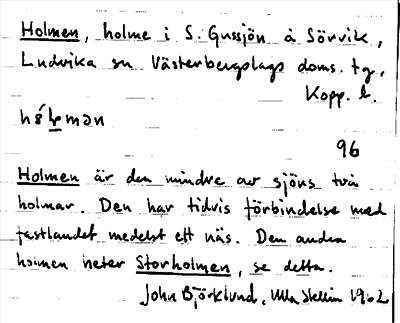 Holmen, holme i S. Gussjön å Sörvik,
Ludvika sn Västerbergslags doms. tg.,
Kopp. l.
96
Holmen är den mindre av sjöns två
holmar. Den har tidvis förbindelse med
fastlandet medelst ett näs. Den andra
holmen heter Storholmen, se detta.
John Björklund, Ulla Stellin 1962